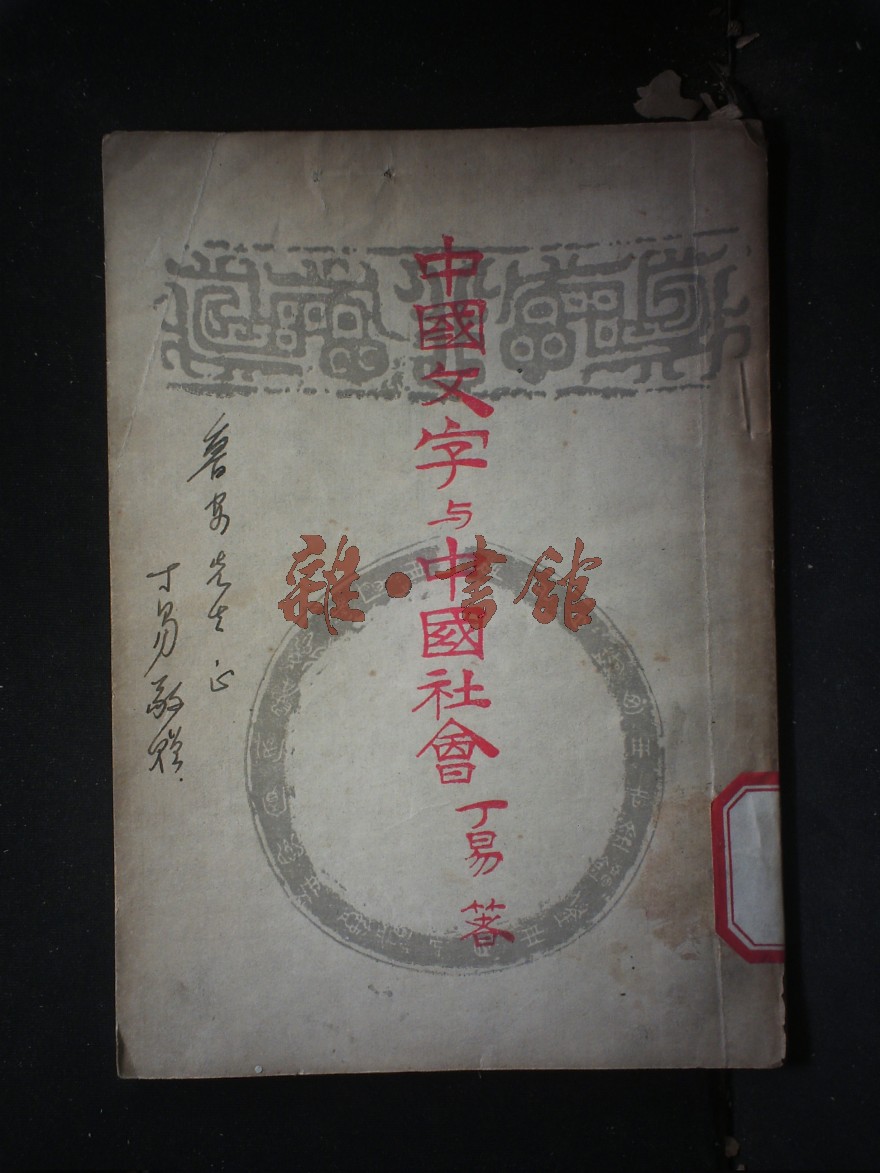 中國文字与中國社會
丁易 著
魯安先生 正
丁易敬贈.
雜·書館